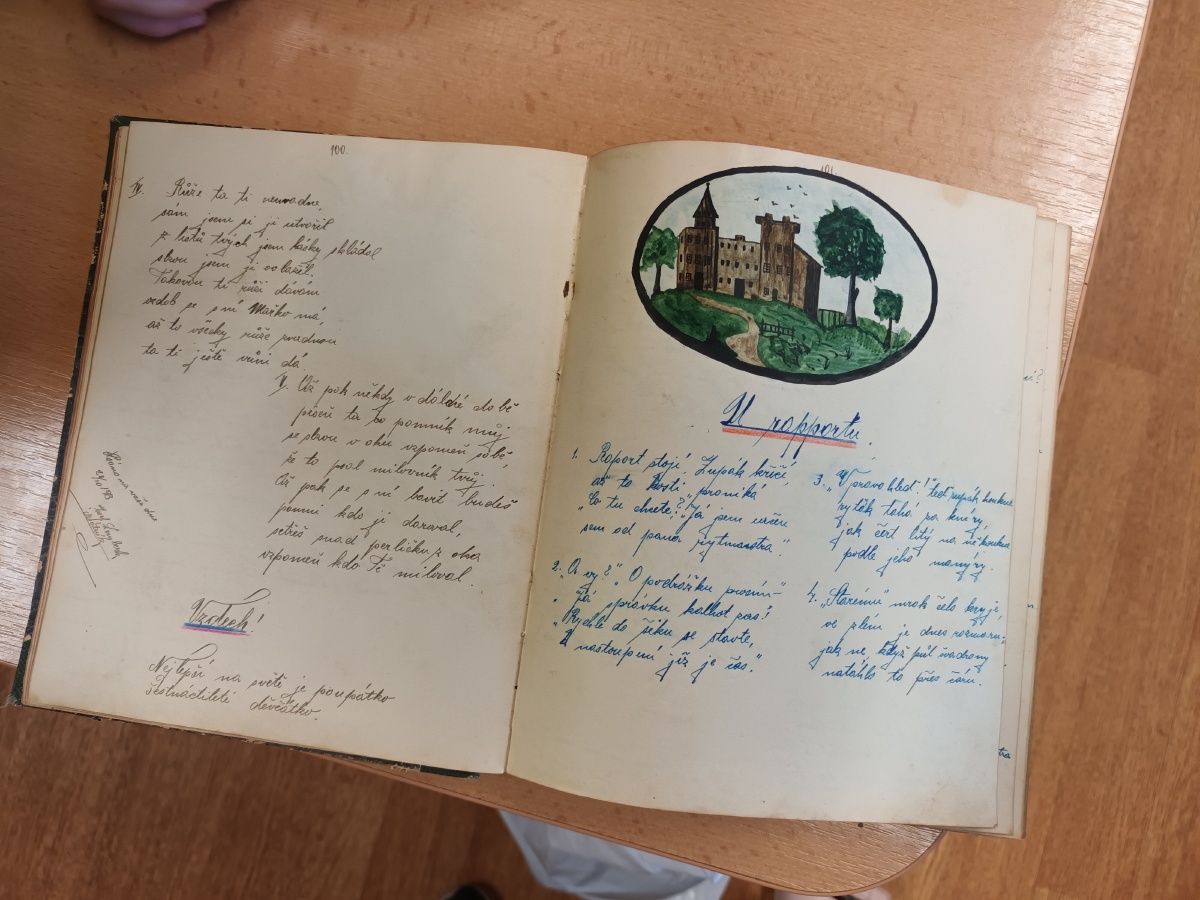 100.
IV. Růže ta ti neuvadne,
sám jsem si ji utvořil
z listů tvých jsem lásky skládal
slzou jsem je
Takovou ti růži dávám
ozdob se s ní Mařko má,
až to všecky růže zvadnou
ta ti ještě vůni dá.
V. Až pak někdy v dáldné době
píseň ta co pomník můj
se slzou v oku vzpomeň sobě,
že to psal milovník tvůj.
Až pak se s ní bavit budeš
pomni kdo ji daroval,
setřeš snad perličku z oka
vzpomeň kdo Tě miloval.
Vzdech!
Nejlepší na světě je poupátko
šestnáctileté děvčátko.
101.
U rapportu.
1. Raport stojí. Zupák křičí,
až to kosti proniká
„Co tu chcete?" „Já jsem určen
sem od pana rytmistra."
2. „A vy?" „O podrážku prosím"
„Já správku kalhot zas!"
„Rychle do šiku se stavte,
K nastoupení již je čas."
3. „Vpravo hleď!" teď zupák houkne
ryták tahá za kníry,
jak čert litý na ně kouká
podle jeho manýry.
4. „Starému" mrak čelo kryje,
ve zlém je dnes rozmaru,
jak ne, když půl švadrony
natáhlo to přes čáru.